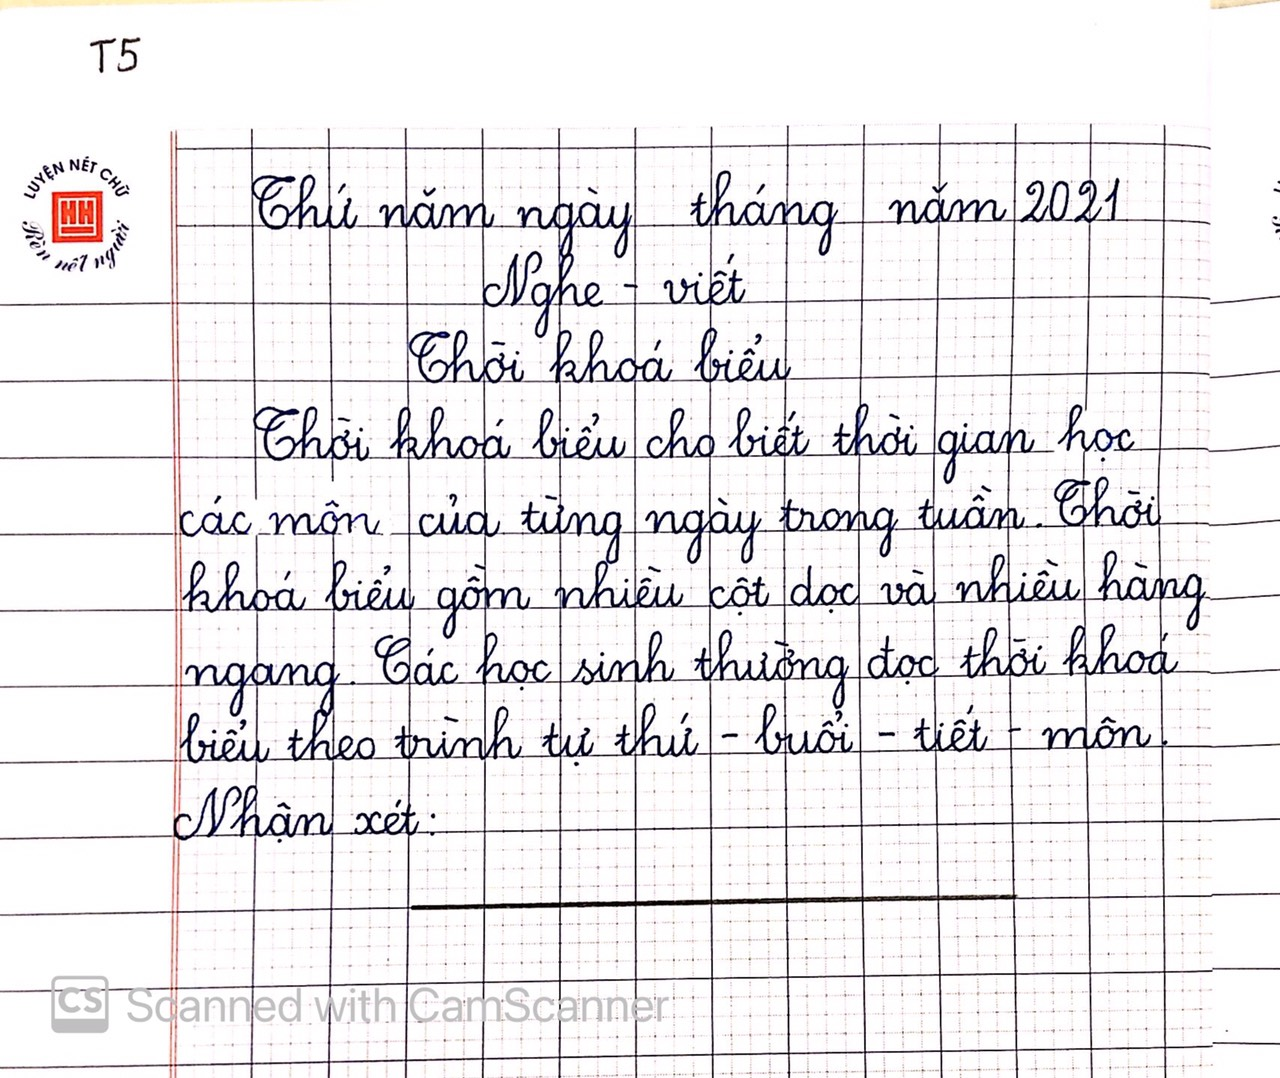 T5
LUYỆN NÉT CHỮ
HH
Rèn nết người
Thứ năm ngày tháng năm 2021
Nghe - viết
Thời khoá biểu
Thời khoá biểu cho biết thời gian học
các môn của từng ngày trong tuần. Thời
khoá biểu gồm nhiều cột dọc và nhiều hàng
ngang. Các học sinh thường đọc thời khoá
biểu theo trình tự thứ - buổi - tiết - môn.
Nhận xét:
CS Scanned with CamScanner